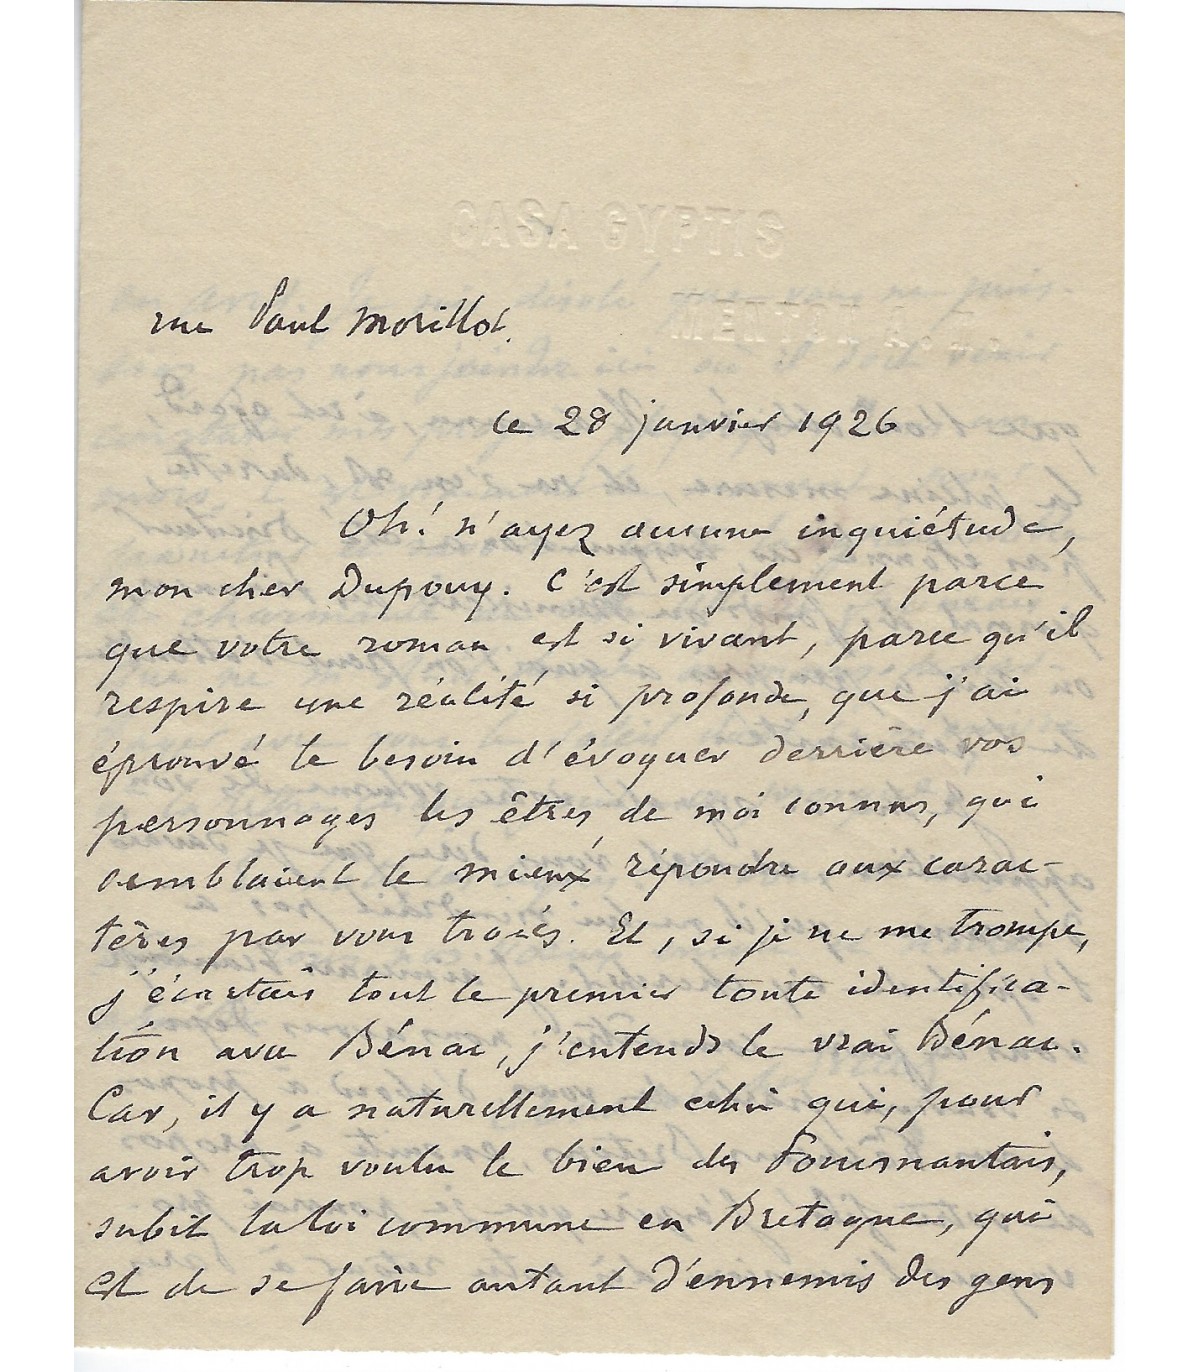 CASA GYPTIS
MENTON
rue Paul Morillot.
le 28 janvier 1926
Oh! n'ayez aucune inquiétude,
mon cher Dupouy. C'est simplement parce
que votre roman est si vivant, parce qu'il
respire une réalité si profonde, que j'ai
éprouvé le besoin d'évoquer derrière vos
personnages les êtres, de moi connus, qui
semblaient le mieux répondre aux carac-
tères par vous tracés. Et, si je ne me trompe,
j'écartais tout le premier toute identifica-
tion avec Bénac, j'entends le vrai Bénac.
Car, il y a naturellement celui qui, pour
avoir trop voulu le bien des Fouesnantais,
subit la loi commune en Bretagne, qui
est de se faire autant d'ennemis des gens